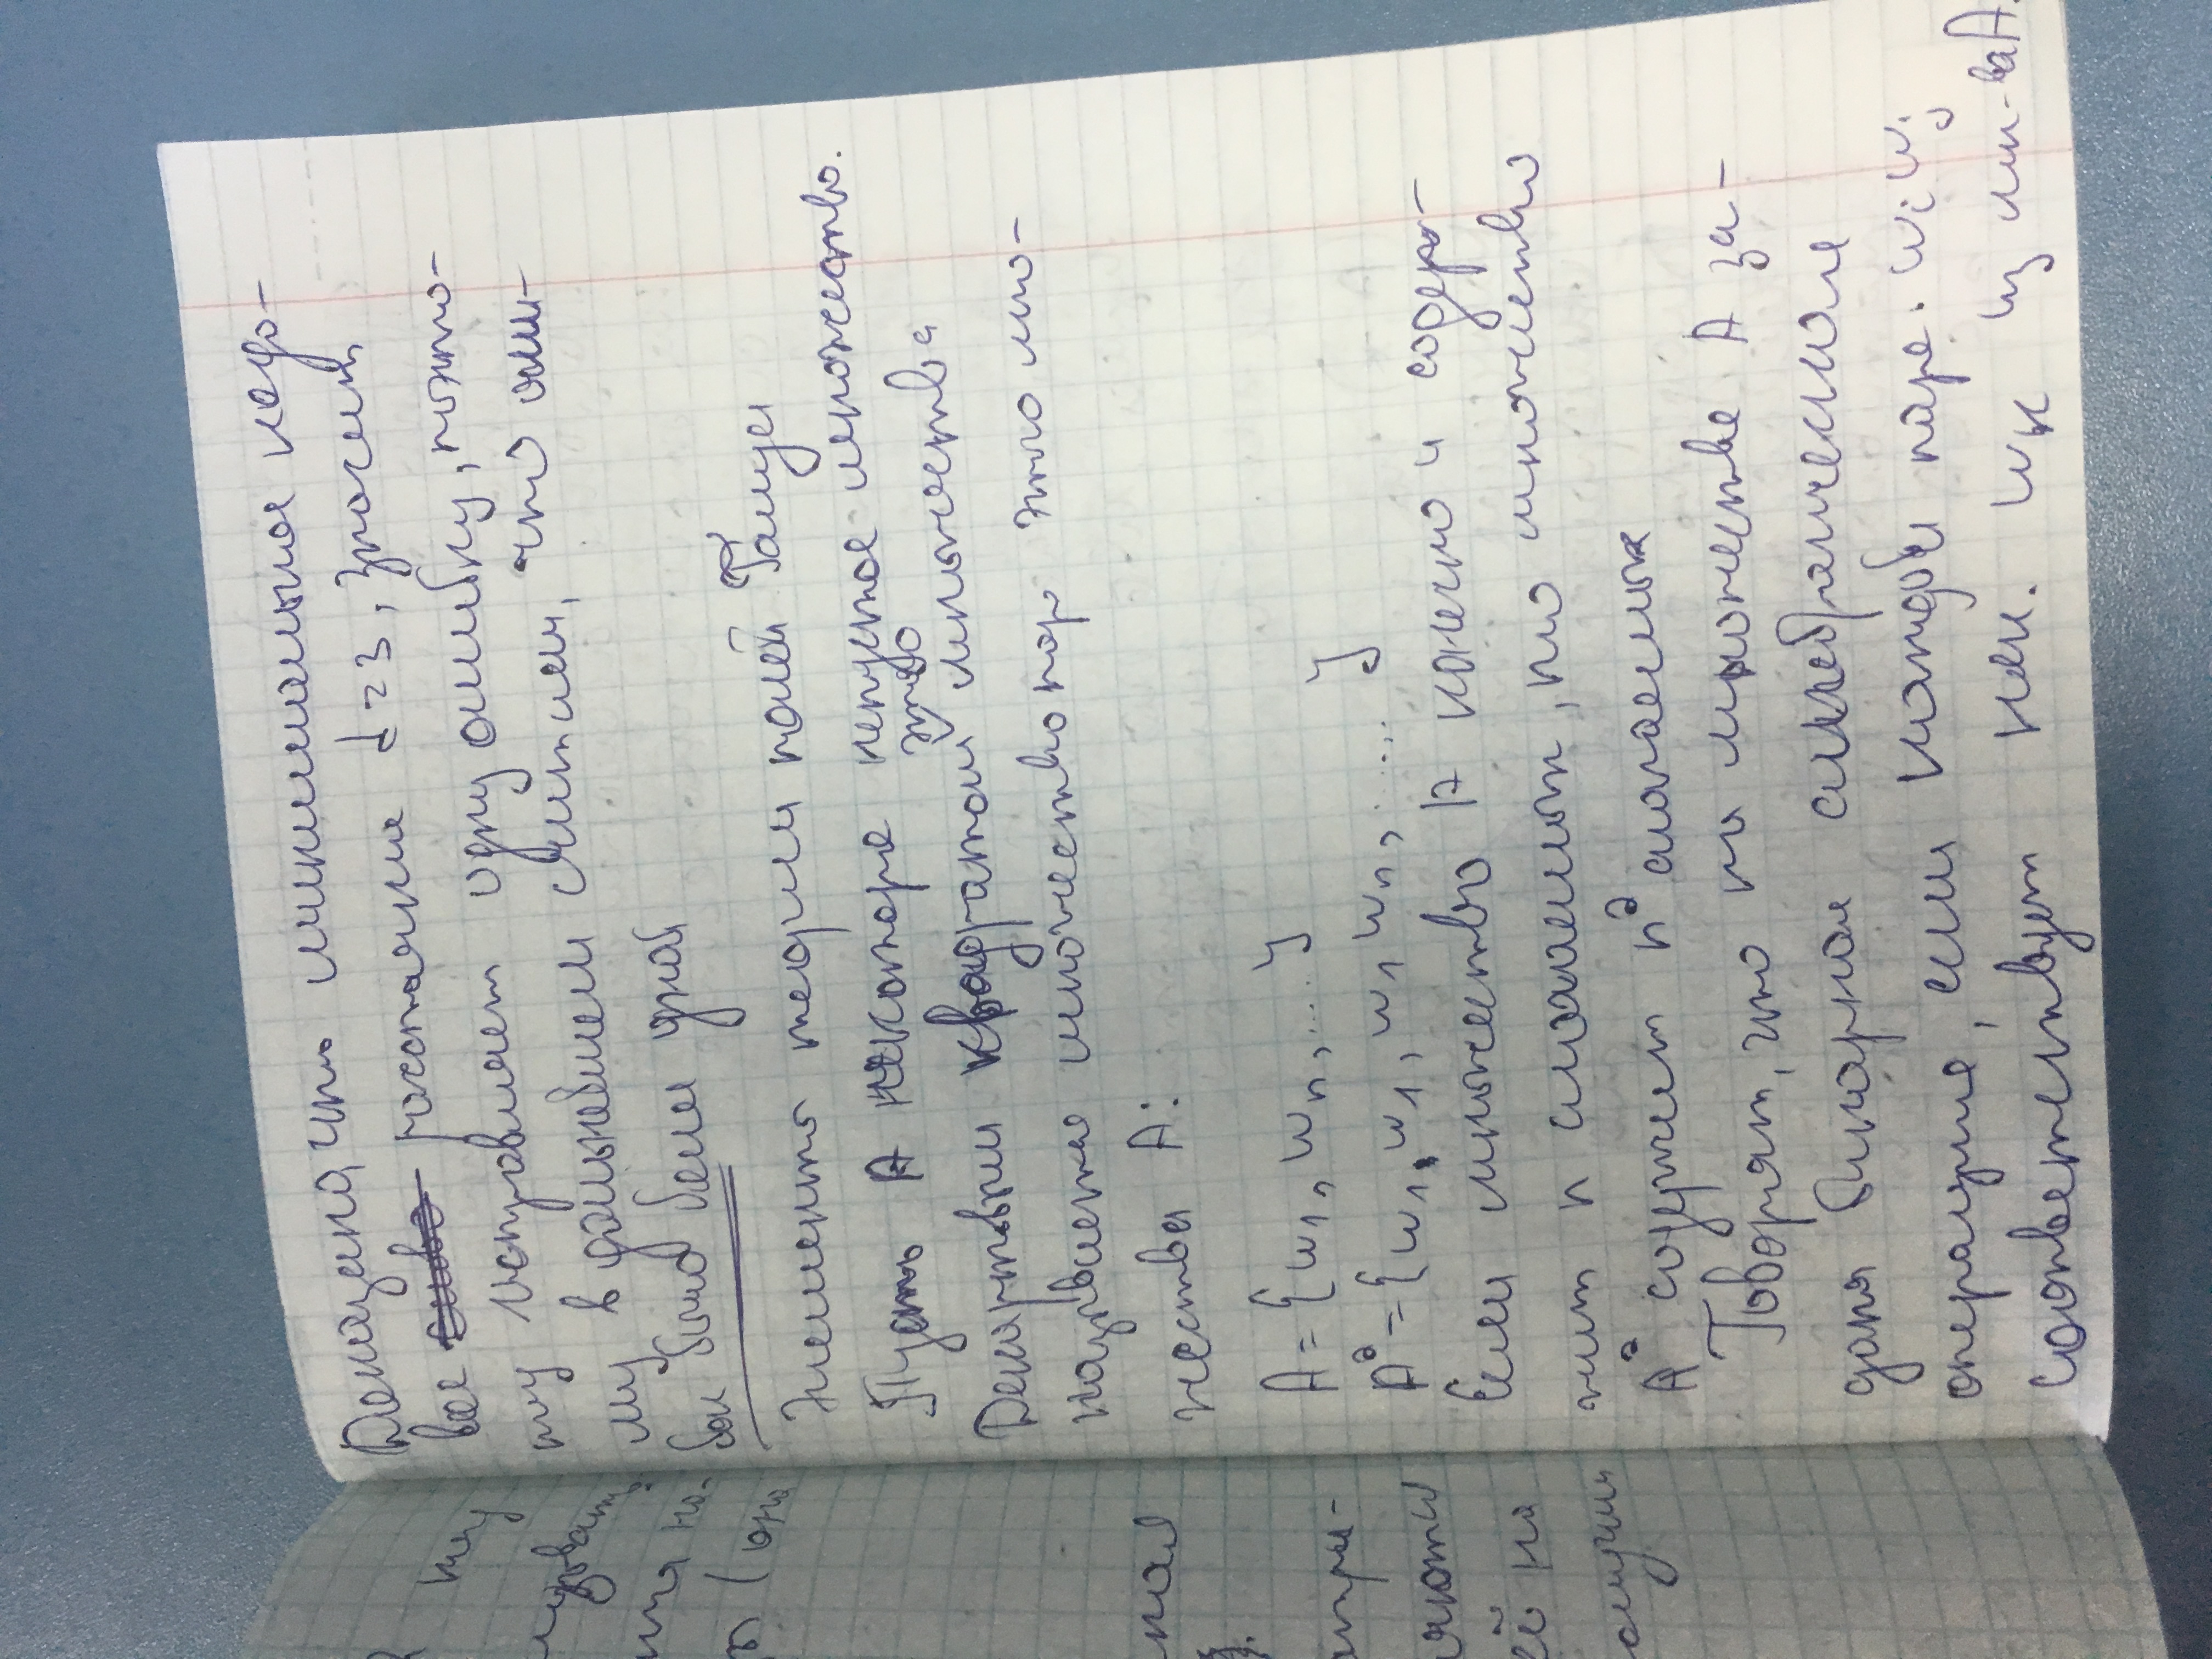 Доказано, что минимальное кодо-
вое расстояние d=3, значит
исправляет одну ошибку, поэто-
му в дальнейшем считаем, что оши-
бок было более одной
Элементы теории полей Галуа
Пусть A некоторое непустое множество.
Декартовым квадратом этого множества
называется множество пар этого мно-
жества A:
A = {w₁, wₙ, .... }
A² = {w₁, w₁, w₁ wₙ, ..... }
Если множество A конечно и содер-
жит n слагаемых, то множество
A² содержит n² слагаемых
Говорят, что на множестве A за-
дана бинарная алгебраическая
операция, если каждой паре wᵢ wⱼ
соответствует нек. wₖ из мн-ва A.
ту
на-
(она
ей на